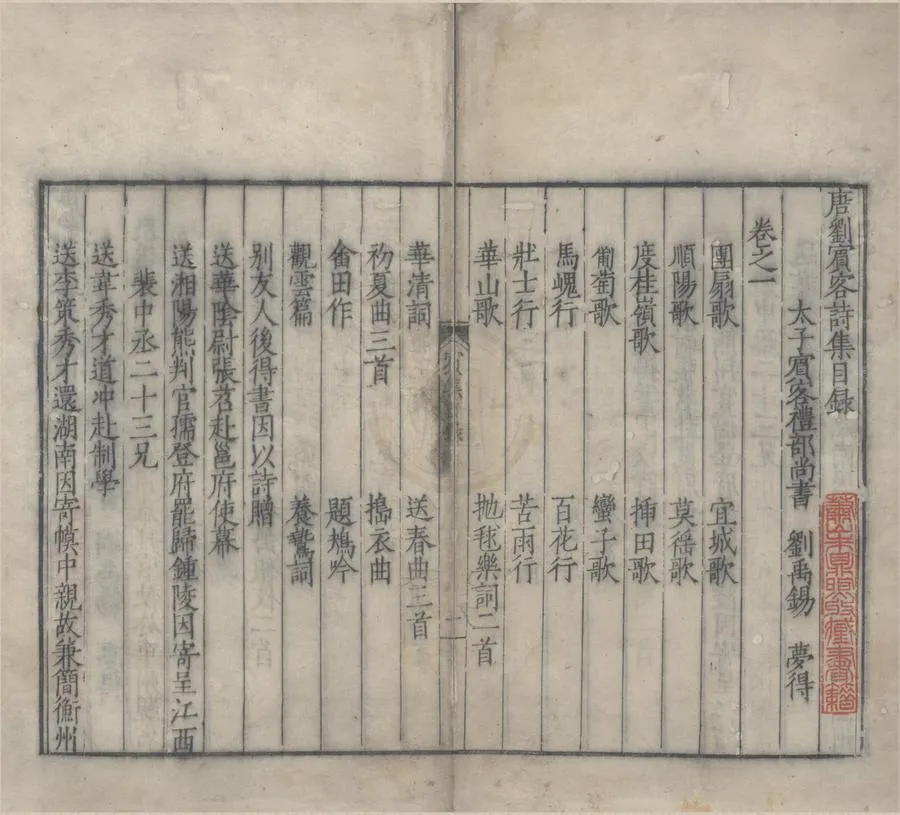 唐劉賓客詩集目録
太子賓客禮部尚書 劉禹錫 夢得
卷之一
團扇歌 宜城歌
順陽歌 莫徭歌
度桂嶺歌 插田歌
葡萄歌 蠻子歌
馬嵬行 百花行
壯士行 苦雨行
華山歌 抛毬樂詞二首
華清詞 送春曲三首
初夏曲三首 搗衣曲
畬田作 題鴂吟
觀雲篇 養鷙詞
别友人後得書因以詩贈
送華陰尉張苕赴邕府使幕
送湘陽熊判官孺登府罷歸鍾陵因寄呈江西
裴中丞二十三兄
送韋秀才道冲赴制學
送李策秀才還湖南因寄幙中親故兼簡衡州